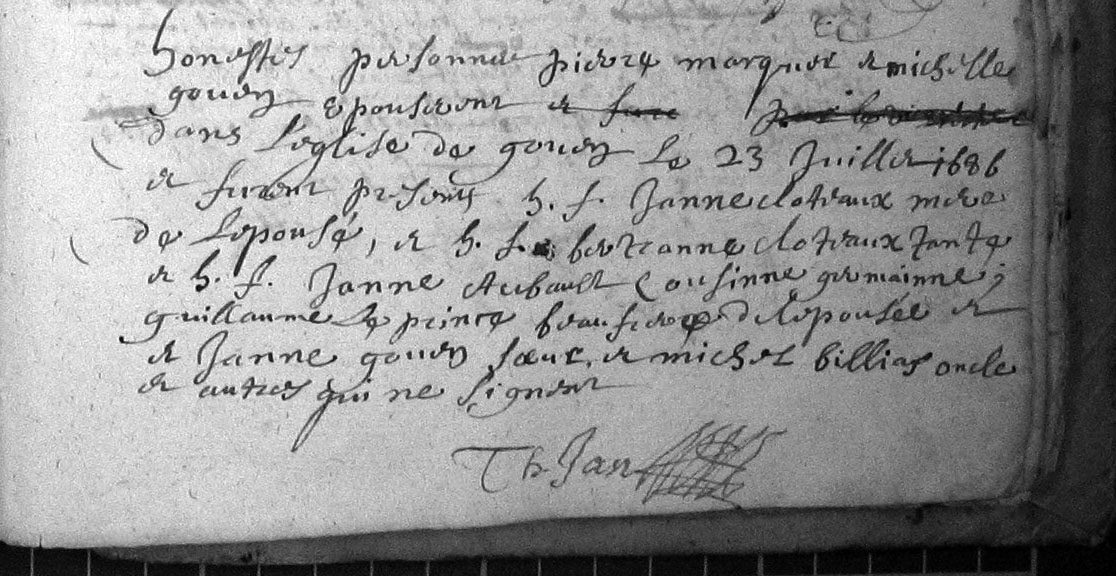 honestes personnes pierre marquer et michelle
gouen épouserent et fure
dans l'eglise de gouen le 23 Juillet 1686
et furent presents h. f. Janne cloteaux mere
de l'epousé, et h. f. bertranne cloteaux tante
et h. f. Janne Aubault cousinne germainne;
guillaume le prince beaufrere de l'epousée et
et Janne gouen sœur, et michel billias oncle
et autres qui ne signent
Th Jan